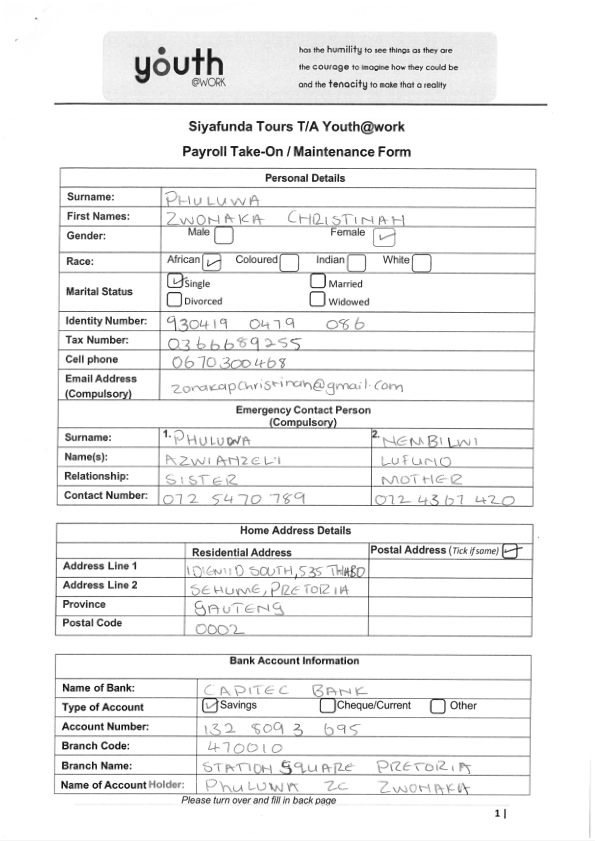 youth
@WORK
has the humility to see things as they are
the courage to imagine how they could be
and the tenacity to make that a reality
Siyafunda Tours T/A Youth@work
Payroll Take-On / Maintenance Form
Personal Details
Surname: PHULUWA
First Names: ZWONAKA CHRISTINAH
Gender: Male Female
Race: African Coloured Indian White
Marital Status Single Married
Divorced Widowed
Identity Number: 930419 0479 086
Tax Number: 0366689255
Cell phone 0670300468
Email Address (Compulsory) zonakapchristinah@gmail.com
Emergency Contact Person
(Compulsory)
Surname: 1. PHULUWA 2. NEMBILWI
Name(s): AZWIANZELI LUFUNO
Relationship: SISTER MOTHER
Contact Number: 072 5470 789 072 4367 420
Home Address Details
Residential Address Postal Address (Tick if same)
Address Line 1 SOUTH, 535 THABO
Address Line 2 SEHUME, PRETORIA
Province GAUTENG
Postal Code 0002
Bank Account Information
Name of Bank: CAPITEC BANK
Type of Account Savings Cheque/Current Other
Account Number: 132 8093 695
Branch Code: 470010
Branch Name: STATION SQUARE PRETORIA
Name of Account Holder: PHULUWA ZC ZWONAKA
Please turn over and fill in back page
1 |